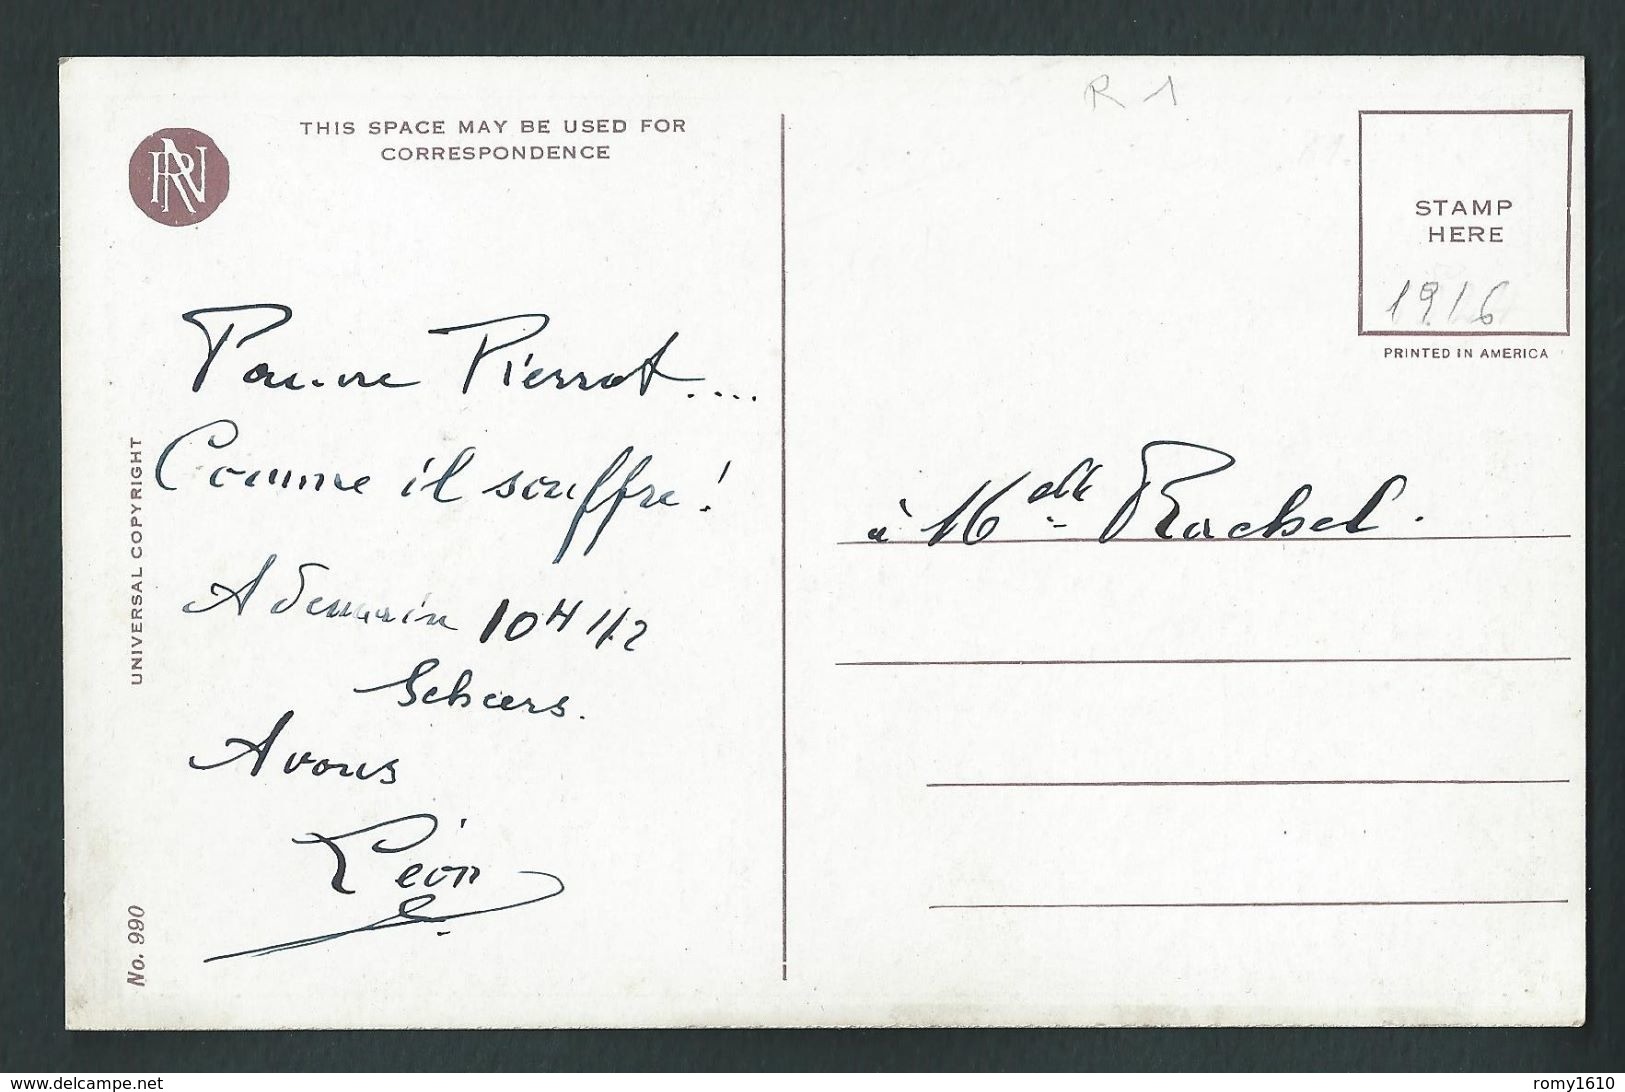 R 1
THIS SPACE MAY BE USED FOR
CORRESPONDENCE
RN
STAMP
HERE
1916
PRINTED IN AMERICA
Pauvre Pierrot....
Comme il souffre !
A demain 10H 1/2
A vous
Léon
à Melle Rachel.
UNIVERSAL COPYRIGHT
No. 990
www.delcampe.net
romy1610